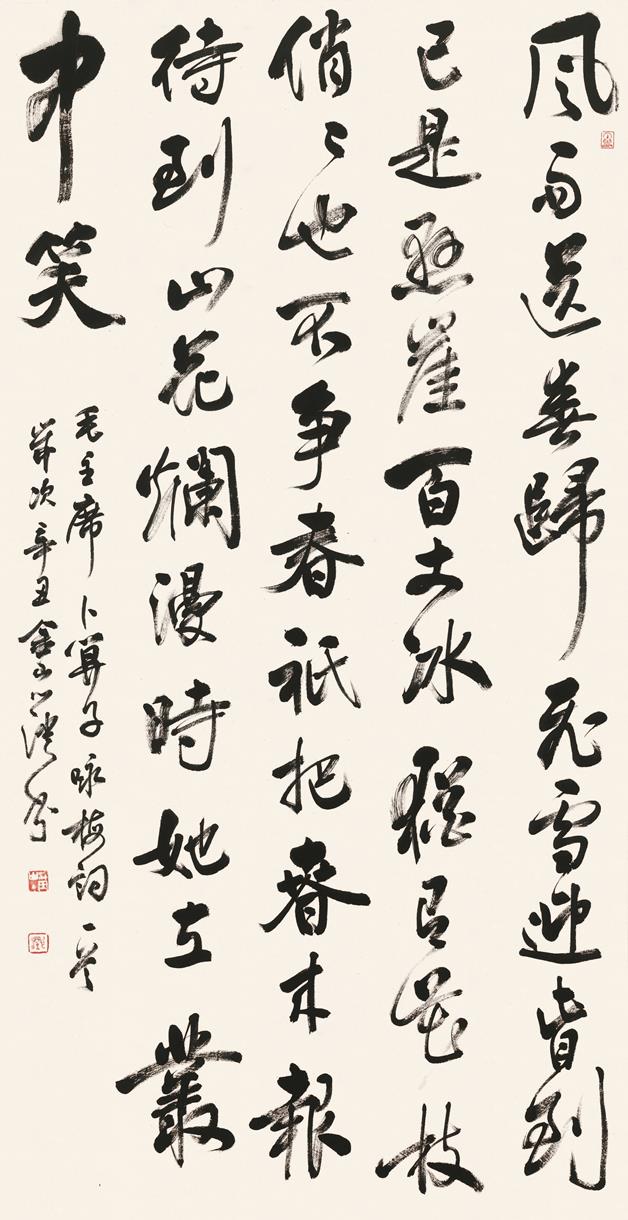 風雨送春歸飛雪迎春到
已是懸崖百丈冰猶有花枝
俏々也不争春祇把春來報
待到山花爛漫時她在叢
中笑
毛主席卜算子咏梅詞一首
歲次辛丑金山